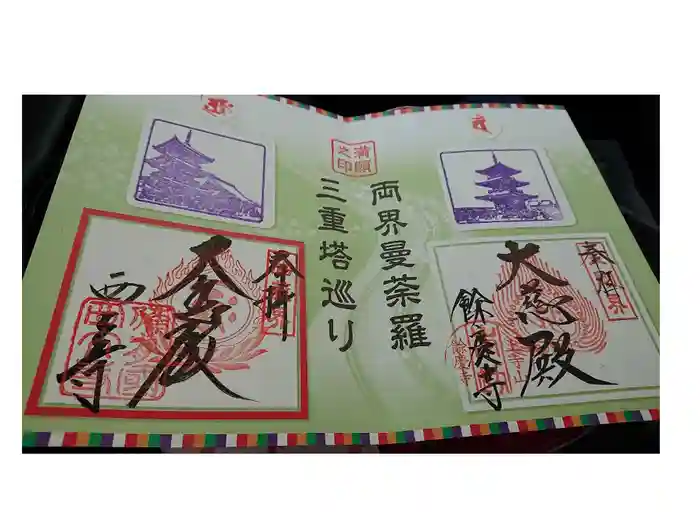 満願
之印
両界曼荼羅
三重塔巡り
奉拝
大慈殿
餘慶寺
奉拝
金蔵
西大寺